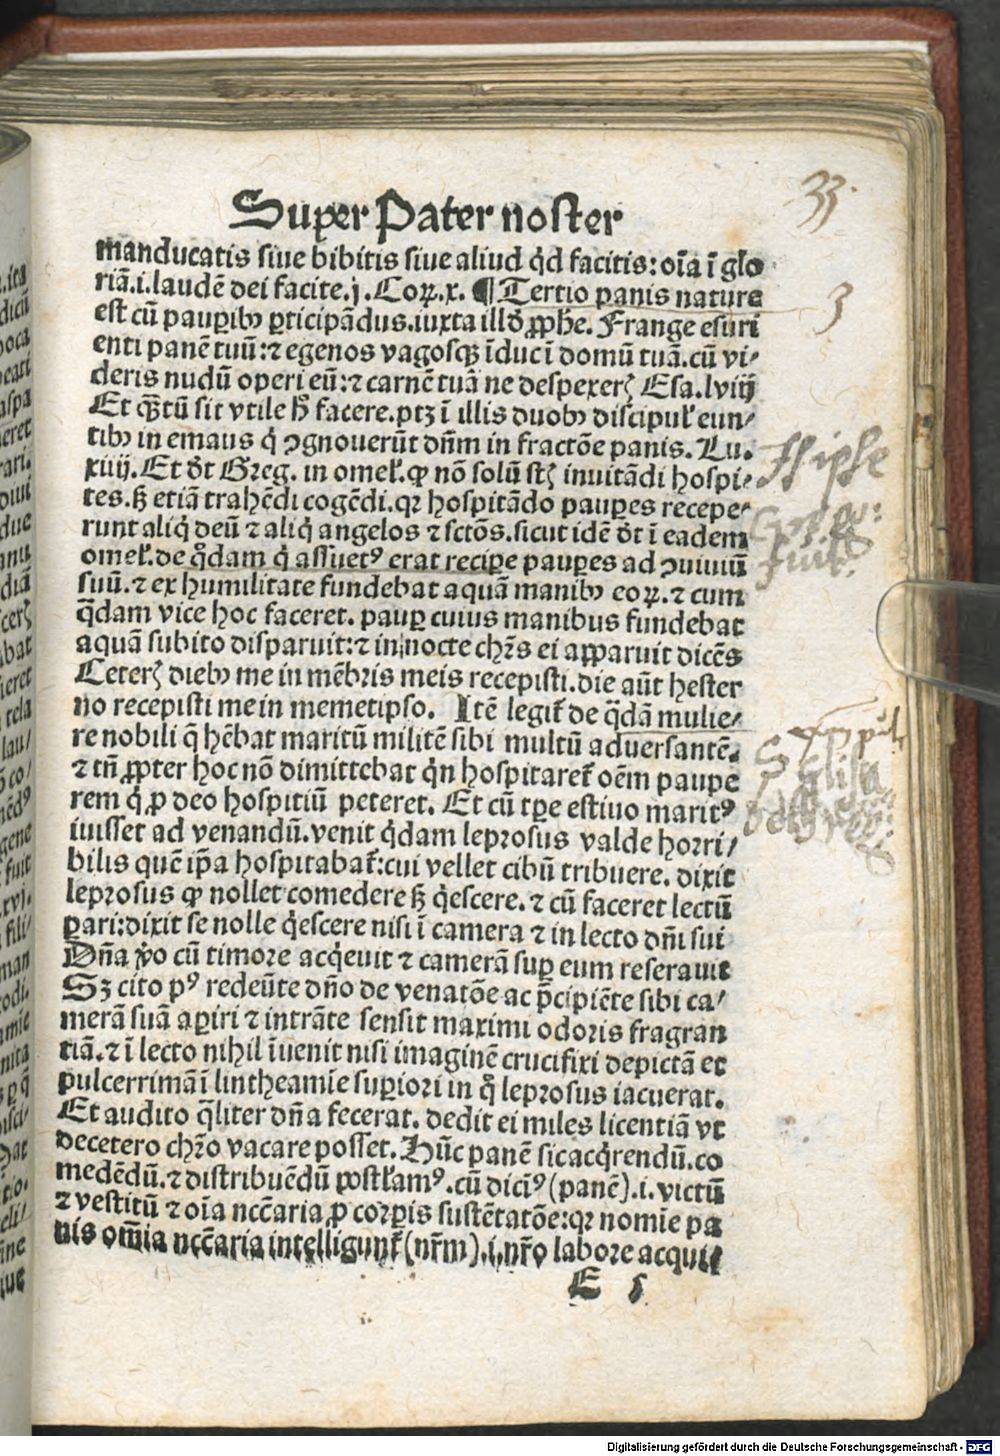 33.
Super Pater noster
manducatis siue bibitis siue aliud qd̓ facitis: oı̄a ı̄ glo
riā.i.laudē dei facite.j.Coꝝ.x. ¶ Tertio panis nature
3
est cū pauꝑibꝰ ꝑticipādus.iuxta illd̓ ꝓphe. Frange esuri
enti panē tuū: ⁊ egenos vagosqꝫ īduc ī domū tuā.cū vi⸗
deris nudū operi eū: ⁊ carnē tuā ne despexerꝭ Esa.lviij
Et q̄tū sit vtile h̓ facere.ptꝫ ī illis duobꝰ discipul̓ eun⸗
tibꝰ in emaus q̇ ꝯgnouerūt dn̄m in fractōe panis. Lu.
xiiij. Et d̓t Greg. in omel̓. ꝙ nō solū st̄ꝭ inuitādi hospi⸗
tes. sꝫ etiā trahēdi cogēdi. qꝛ hospitādo pauꝑes recepe⸗
runt aliq̇ deū ⁊ aliq̇ angelos ⁊ sctōs. sicut idē d̓t ī eadem
omel̓. de qd̓am q̇ assuetꝰ erat reciꝑe pauꝑes ad ꝯuiuiū
suū. ⁊ ex humilitate fundebat aquā manibꝰ eoꝝ. ⁊ cum
q̄dam vice hoc faceret. pauꝑ cuius manibus fundebat
aquā subito disparuit: ⁊ in nocte chr̄s ei apparuit dicēs
Ceterꝭ diebꝰ me in mēbris meis recepisti. die aūt hester
no recepisti me in memetipso. Itē legit̓ de q̄dā mulie⸗
re nobili q̄ hēbat maritū militē sibi multū aduersantē.
⁊ tn̄ ꝓpter hoc nō dimittebat qn̓ hospitaret̓ oēm paupe
rem q̇ ꝓ deo hospitiū peteret. Et cū tꝑe estiuo maritꝰ
iuisset ad venandū. venit qd̓am leprosus valde horri⸗
bilis quē ip̄a hospitabat̓: cui vellet cibū tribuere. dixit
leprosus ꝙ nollet comedere sꝫ q̇escere. ⁊ cū faceret lectū
ꝑari: dixit se nolle q̇escere nisi ī camera ⁊ in lecto dn̄i sui
Dn̄a v̓o cū timore acq̇euit ⁊ camerā suꝑ eum reserauit
Sꝫ cito pꝰ redeūte dn̄o de venatōe ac p̄cipiēte sibi ca⸗
merā suā aꝑiri ⁊ intrāte sensit maximi odoris fragran
tiā. ⁊ ī lecto nihil īuenit nisi imaginē crucifixi depictā et
pulcerrimā ī lintheamīe suꝑiori in q̊ leprosus iacuerat.
Et audito q̄liter dn̄a fecerat. dedit ei miles licentiā vt
decetero chr̄o vacare posset. Hūc panē sic acq̇rendū. co
medēdū. ⁊ distribuēdū postl̓amꝰ. cū dicīꝰ (panē).i. victū
⁊ vestitū ⁊ oı̄a nccāria ꝓ corꝑis sustētatōe: qꝛ nomīe pa
nis om̄ia nccāria intelligunt̓ (nr̄m).i. nr̄o labore acqui⸗
E s
Digitalisierung gefördert durch die Deutsche Forschungsgemeinschaft - DFG